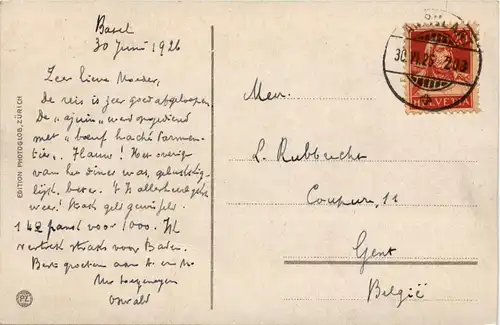 Basel
30 Juni 1926
Zeer lieve Moeder,
De reis is zeer goed afgeloopen.
De "ajuin" werd opgediend
met "bœuf haché Parmen-
tier". Flauw! Het overige
van het diner was, gelukkig-
lijk, beter. 't Is allerheerlijkst
weer! Straks geld gewisseld.
142 voor 1000. Ik
vertrek straks voor Baden.
Beste groeten aan A. en M.
Uw toegenegen
Oswald
EDITION PHOTOGLOB, ZÜRICH
PZ
30.VI.26
HELVETIA
Mevr.
L. Rubbrecht
Coupure, 11
Gent
België